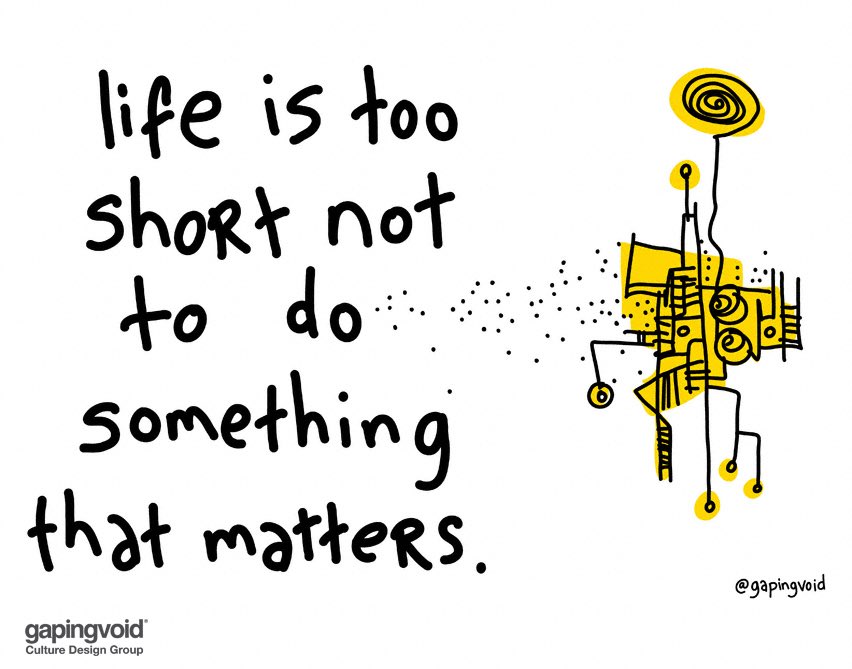 life is too
short not
to do
something
that matters.
@gapingvoid
gapingvoid®
Culture Design Group